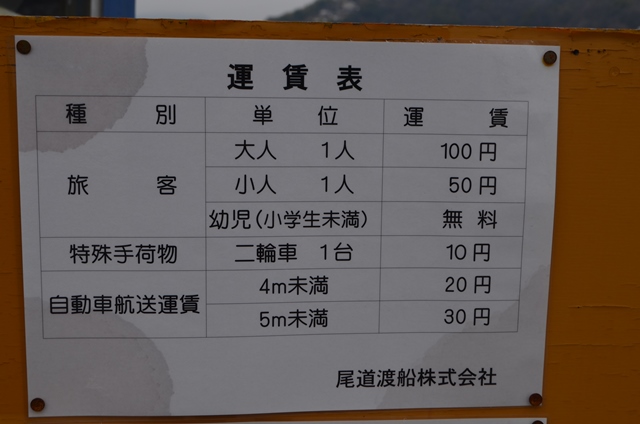 運賃表
種別 単位 運賃
旅客 大人 1人 100円
小人 1人 50円
幼児(小学生未満) 無料
特殊手荷物 二輪車 1台 10円
自動車航送運賃 4m未満 20円
5m未満 30円
尾道渡船株式会社